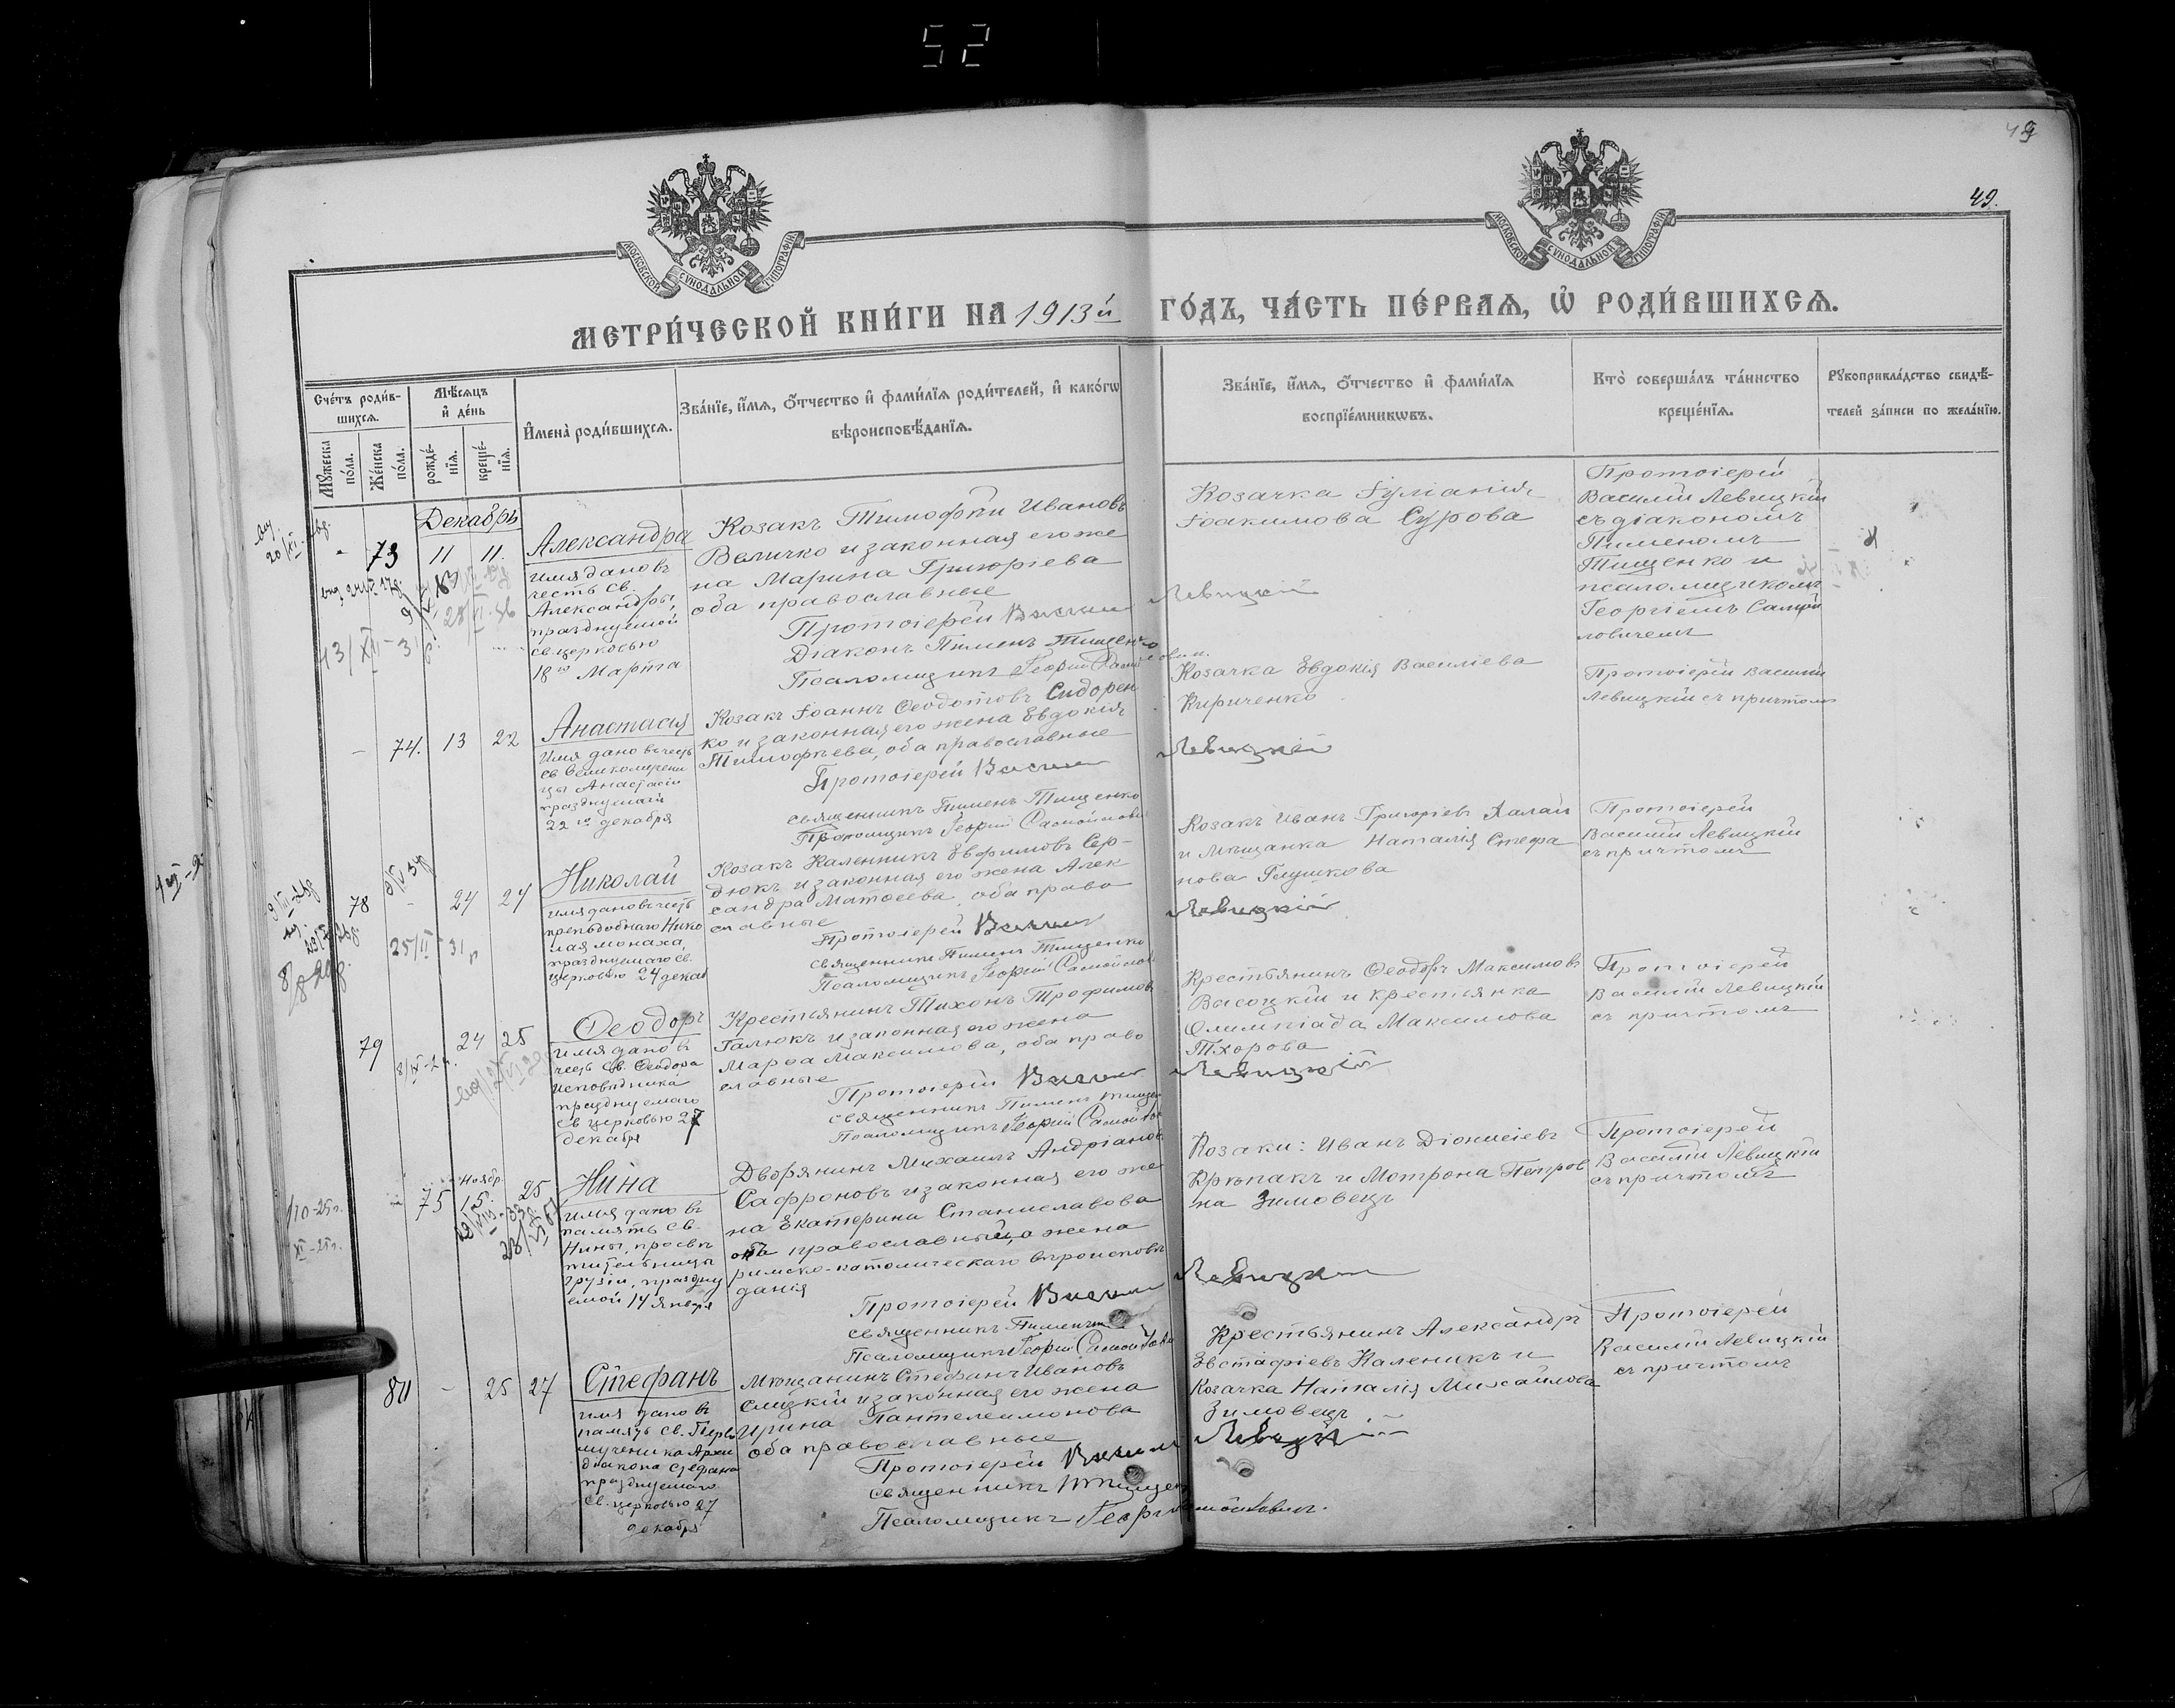 52
49
49.
МОСКОВСКОЙ СѴНОДАЛЬНОЙ ТИПОГРАФІИ
МОСКОВСКОЙ СѴНОДАЛЬНОЙ ТИПОГРАФІИ
МЕТРИ́ЧЕСКОЙ КНИ́ГИ НА 1913й ГО́ДЪ, ЧА́СТЬ ПЕ́РВАЯ, Ѿ РОДИ́ВШИХСЯ.
Сче́тъ роди́в-
шихся.
Мꙋ́жеска по́ла.
Же́нска по́ла.
Мѣ́сяцъ
и҆ де́нь
рожде́-
нїя.
креще́-
нїя.
И҆мена̀ роди́вшихся.
Зва́нїе, и҆́мя, ѻ҆́тчество и҆ фами́лїя роди́телей, и҆ како́гѡ
вѣроисповѣ́данїя.
Зва́нїе, и҆́мя, ѻ҆́тчество и҆ фами́лїя
воспрїе́мникѡвъ.
Кто̀ соверша́лъ та́инство
креще́нїя.
Рꙋкоприкла́дство свидѣ́-
телей за́писи по жела́нїю.
Декабрь
73
11
11.
Александра
имя дано въ
честь св.
Александры,
празднуемой
св. церковью
18го Марта
Козакъ Тимофѣй Ивановъ
Величко и законная его же
на Марина Григоріева
оба православные
Протоіерей Василій Левицкій
Діаконъ Пименъ Тищенко
Псаломщикъ Георгій Самойловичъ
Козачка Іуліанія
Іоакимова Сурова
Протоіерей
Василій Левицкій
съ діакономъ
Пименомъ
Тищенко и
псаломщикомъ
Георгіемъ Самой
ловичемъ
74.
13
22
Анастасія
Имя дано въ честь
св великомучени
цы Анастасіи
празднуемой
22го декабря
Козакъ Іоаннъ Ѳеодотовъ Сидорен
ко и законная его жена Евдокія
Тимофѣева, оба православные
Протоіерей Василій Левицкій
священникъ Пименъ Тищенко
Псаломщикъ Георгій Самойлович
Козачка Евдокія Василіева
Кириченко
Протоіерей Василій
Левицкій съ причтомъ
78
24
24
Николай
имя дано въ честь
преподобнаго Нико
лая монаха,
празднуемаго св.
церковью 24 декаб
Козакъ Каленникъ Евфимовъ Сер-
дюкъ и законная его жена Алек
сандра Матѳеева, оба право
славные
Протоіерей Василій Левицкій
священникъ Пименъ Тищенко
Псаломщикъ Георгій Самойлов
Козакъ Иванъ Григоріевъ Халай
и мѣщанка Наталія Стефа
нова Глушкова
Протоіерей
Василій Левицкій
съ причтомъ
79
24
25
Ѳеодоръ
имя дано въ
честь св. Ѳеодора
исповѣдника
празднуемаго
св церковью 27
декабря
Крестьянинъ Тихонъ Трофимов
Галюкъ и законная его жена
Марѳа Максимова, оба право
славные
Протоіерей Василій Левицкій
священникъ Пименъ Тищен
Псаломщикъ Георгій Самойлов
Крестьянинъ Ѳеодоръ Максимовъ
Высоцкій и крестьянка
Олимпіада Максимова
Тхорова
Протоіерей
Василій Левицкій
съ причтомъ
75
Ноябр.
15
25
Нина
имя дано въ
память св.
Нины, просвѣ
тительницы
Грузіи, праздну
емой 14 января
Дворянинъ Михаилъ Андріанов
Сафроновъ и законная его же
на Екатерина Станиславова
онъ православный, а жена
римско-католическаго вѣроисповѣ
данія
Протоіерей Василій Левицкій
священникъ Пименъ
Псаломщикъ Георгій Самойлов
Козаки: Иванъ Діонисіевъ
Крѣпакъ и Мотрона Петров
на Зимовецъ
Протоіерей
Василій Левицкій
съ причтомъ
80
25
27
Стефанъ
имя дано въ
память св. Перво
мученика Архи
діакона Стефана
празднуемаго
св. церковью 27
декабря
Мѣщанинъ Стефанъ Ивановъ
Слицкій и законная его жена
Ирина Пантелеимонова
оба православные
Протоіерей Василій Левицкій
священникъ Тищен
Псаломщикъ Георгій Самойловичъ.
Крестьянинъ Александръ
Евстафіевъ Каленикъ и
Козачка Наталія Михайлова
Зимовецъ
Протоіерей
Василій Левицкій
съ причтомъ